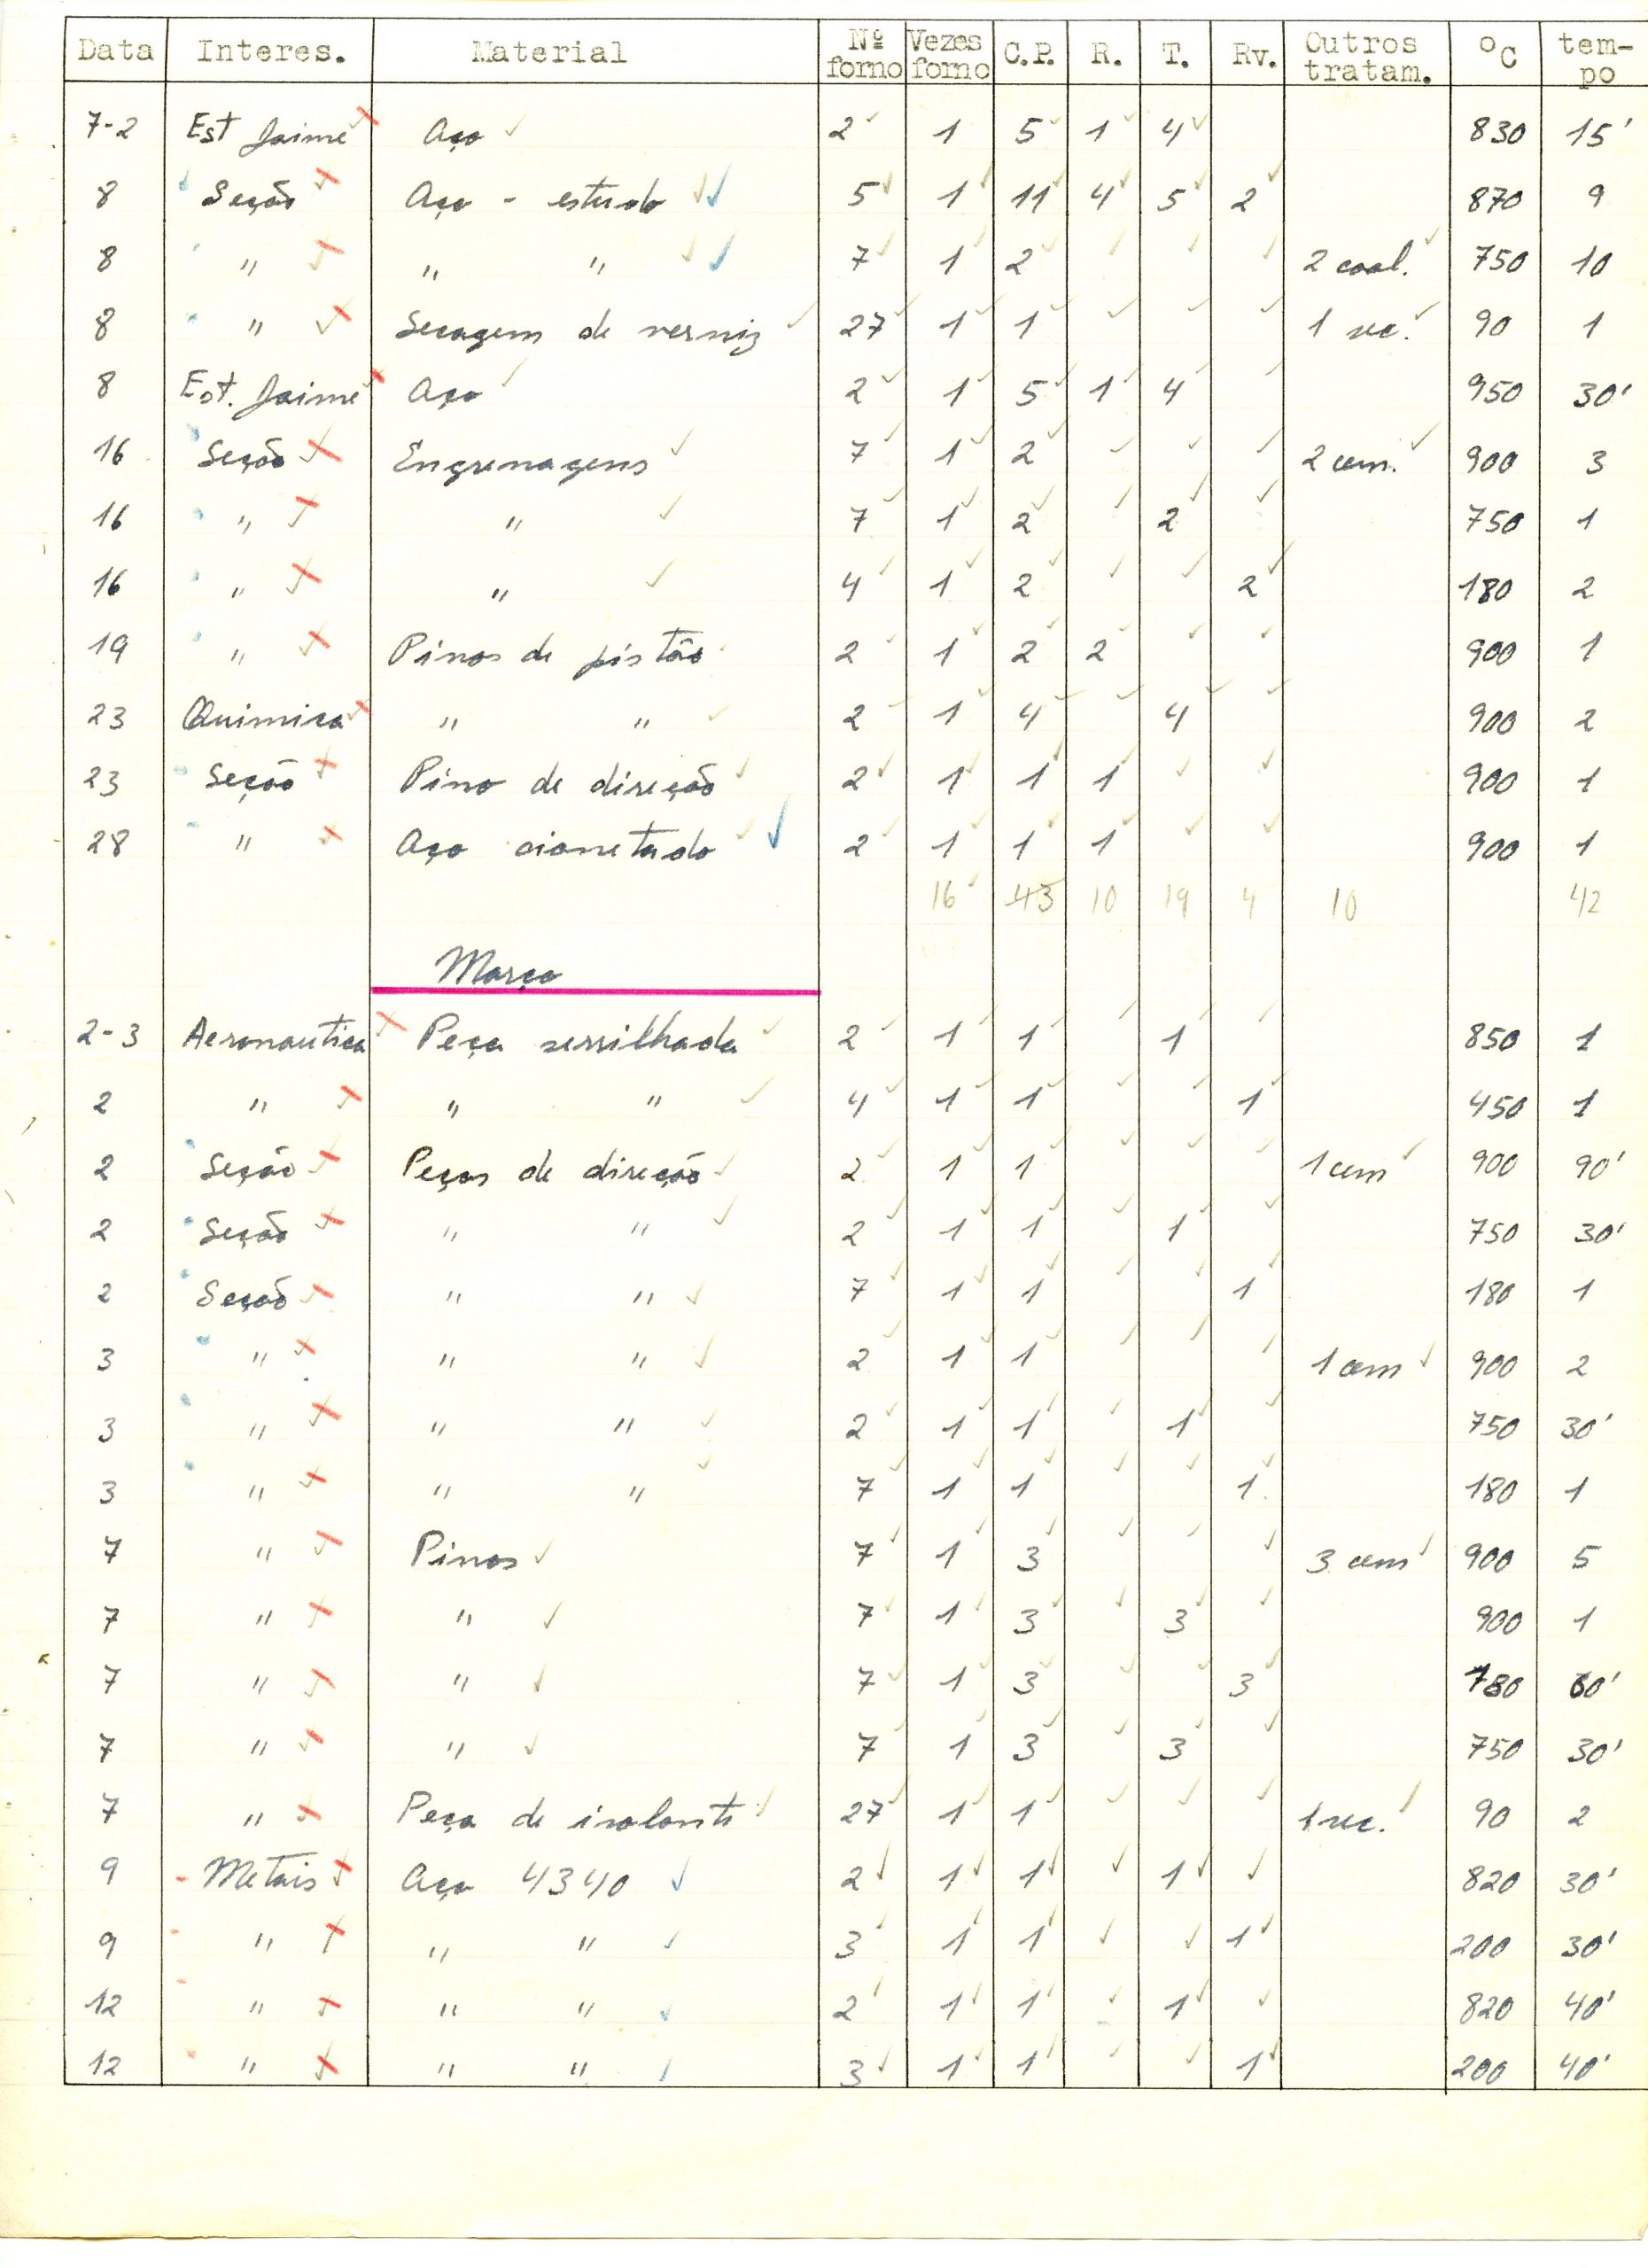 Data Interes. Material Nº forno Vezes forno C.P. R. T. Rv. Outros tratam. ºC tem-po
7-2 Est Jaime Aço 2 1 5 1 4 830 15'
8 Seção Aço - estudo 5 1 11 4 5 2 870 9
8 " " " 7 1 2 2 coal. 750 10
8 " Secagem de verniz 27 1 1 1 sec. 90 1
8 Est. Jaime Aço 2 1 5 1 4 950 30'
16 Seção Engrenagens 7 1 2 2 cem. 900 3
16 " " 7 1 2 2 750 1
16 " " 4 1 2 2 180 2
19 " Pinos de pistão 2 1 2 2 900 1
23 Quimica " " 2 1 4 4 900 2
23 Seção Pino de direção 2 1 1 1 900 1
28 " Aço cianetado 2 1 1 1 900 1
16 43 10 19 4 10 42
Março
2-3 Aeronautica Peça serrilhada 2 1 1 1 850 1
2 " " " 4 1 1 1 450 1
2 Seção Peças de direção 2 1 1 1 cem 900 90'
2 Seção " " 2 1 1 1 750 30'
2 Seção " " 7 1 1 1 180 1
3 " " " 2 1 1 1 cem 900 2
3 " " " 2 1 1 1 750 30'
3 " " " 7 1 1 1 180 1
7 " Pinos 7 1 3 3 cem 900 5
7 " " 7 1 3 3 900 1
7 " " 7 1 3 3 180 60'
7 " " 7 1 3 3 750 30'
7 " Peça de isolante 27 1 1 1 sec. 90 2
9 - Metais Aço 4340 2 1 1 1 820 30'
9 " " " 3 1 1 1 200 30'
12 " " " 2 1 1 1 820 40'
12 " " " 3 1 1 1 200 40'